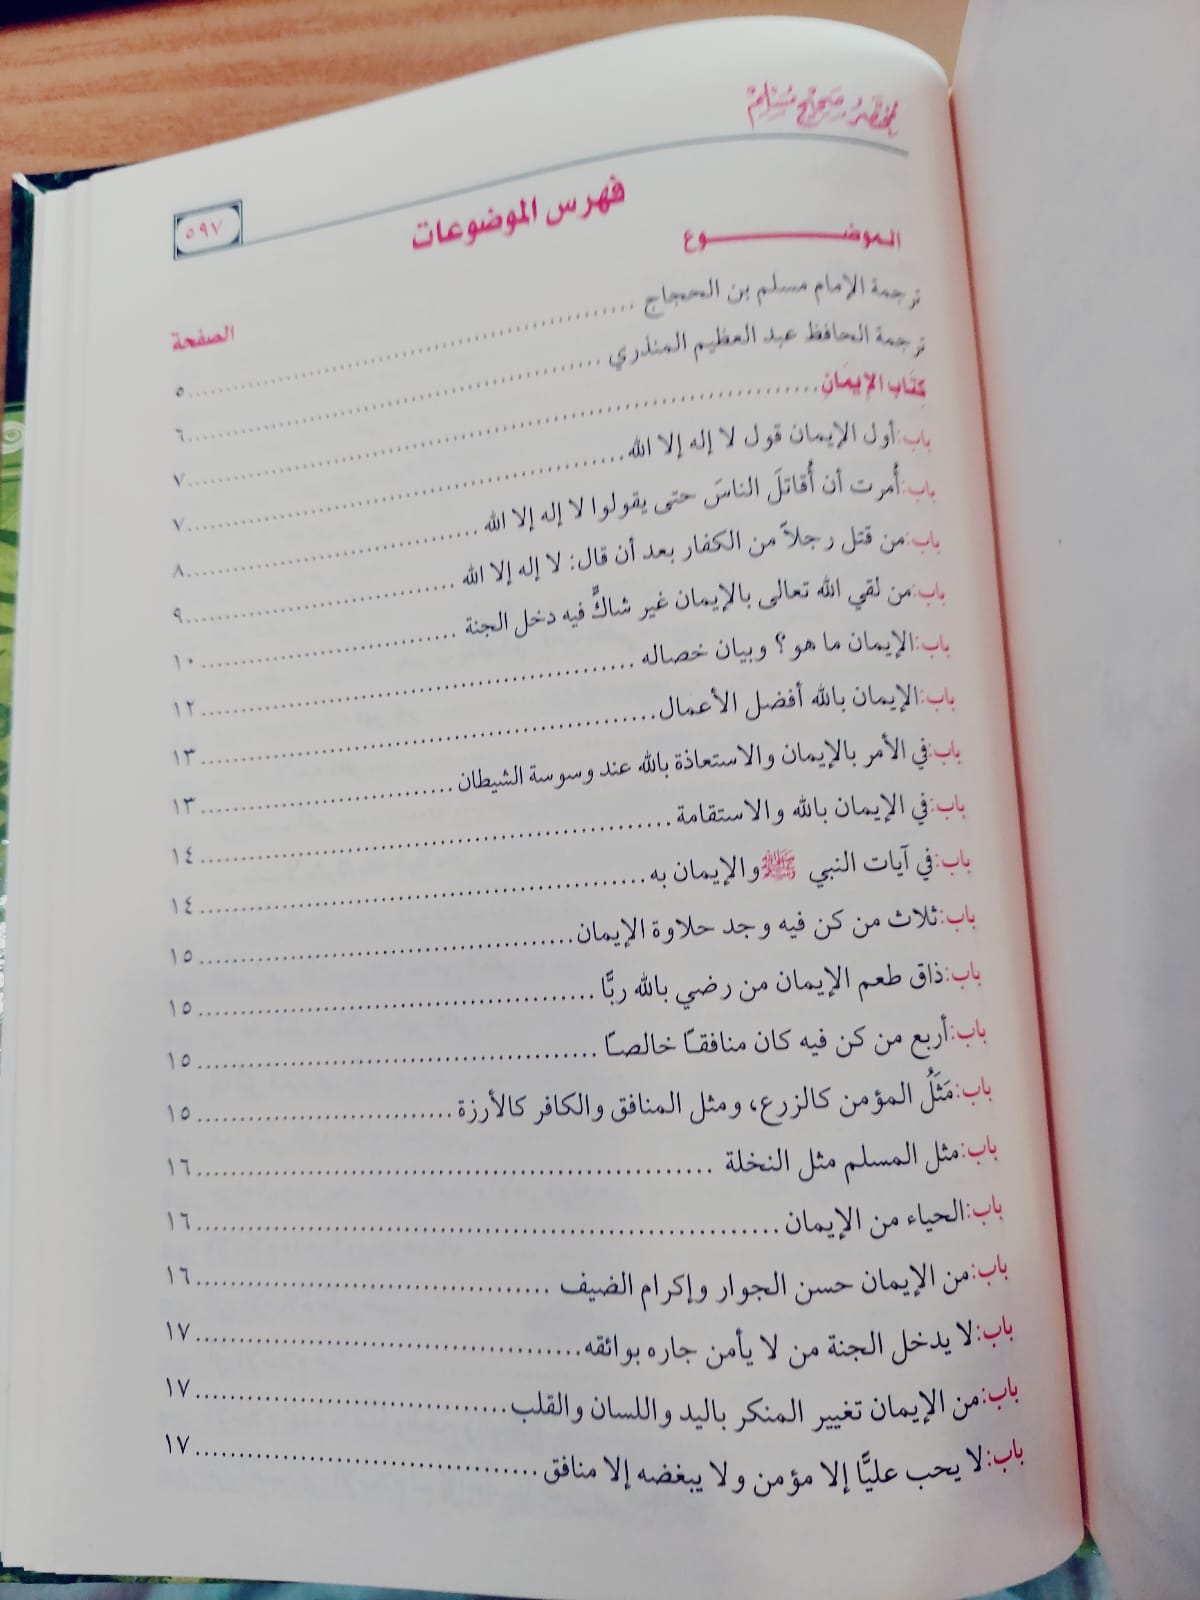 مختصر صحيح مسلم
٥٩٧
فهرس الموضوعات
الموضـــــــوع
الصفحة
ترجمة الإمام مسلم بن الحجاج ........ ٥
ترجمة الحافظ عبد العظيم المنذري ........ ٦
كِتَاب الإِيمَانِ ........ ٧
باب: أول الإيمان قول لا إله إلا الله ........ ٧
باب: أُمرت أن أُقاتلَ الناسَ حتى يقولوا لا إله إلا الله ........ ٨
باب: من قتل رجلاً من الكفار بعد أن قال: لا إله إلا الله ........ ٩
باب: من لقي الله تعالى بالإيمان غير شاكٍّ فيه دخل الجنة ........ ١٠
باب: الإيمان ما هو؟ وبيان خصاله ........ ١٢
باب: الإيمان بالله أفضل الأعمال ........ ١٣
باب: في الأمر بالإيمان والاستعاذة بالله عند وسوسة الشيطان ........ ١٣
باب: في الإيمان بالله والاستقامة ........ ١٤
باب: في آيات النبي ﷺ والإيمان به ........ ١٤
باب: ثلاث من كن فيه وجد حلاوة الإيمان ........ ١٥
باب: ذاق طعم الإيمان من رضي بالله ربًّا ........ ١٥
باب: أربع من كن فيه كان منافقـًا خالصـًا ........ ١٥
باب: مَثَلُ المؤمن كالزرع، ومثل المنافق والكافر كالأرزة ........ ١٥
باب: مثل المسلم مثل النخلة ........ ١٦
باب: الحياء من الإيمان ........ ١٦
باب: من الإيمان حسن الجوار وإكرام الضيف ........ ١٦
باب: لا يدخل الجنة من لا يأمن جاره بوائقه ........ ١٧
باب: من الإيمان تغيير المنكر باليد واللسان والقلب ........ ١٧
باب: لا يحب عليًّا إلا مؤمن ولا يبغضه إلا منافق ........ ١٧